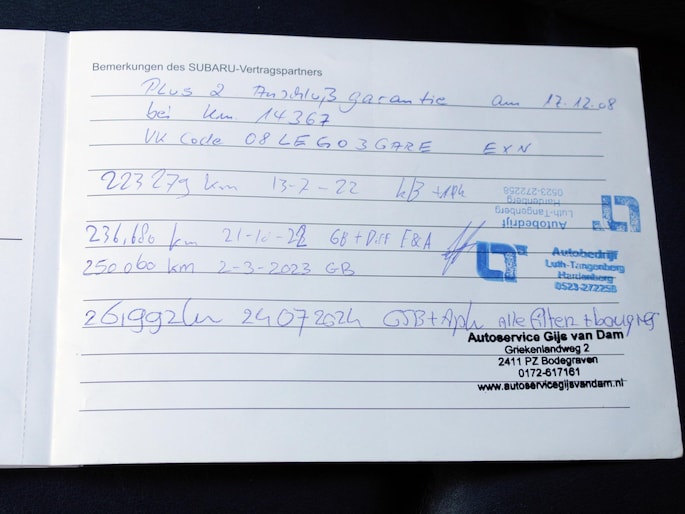 Bemerkungen des SUBARU-Vertragspartners
Plus 2 Anschlußgarantie am 17.12.08
bei km. 14367
VK Code 08LEG03GARE EXN
223279 km 13-7-22 kB +Apk
0523-272258
Hardenberg
Luth-Tangenberg
Autobedrijf
236,680 km 21-10-22 GB + Diff F&A
Autobedrijf
Luth-Tangenberg
Hardenberg
0523-272258
250.060 km 2-3-2023 GB
261992km 24072024 GSB+Apk Alle filters + bougies
Autoservice Gijs van Dam
Griekenlandweg 2
2411 PZ Bodegraven
0172-617161
www.autoservicegijsvandam.nl